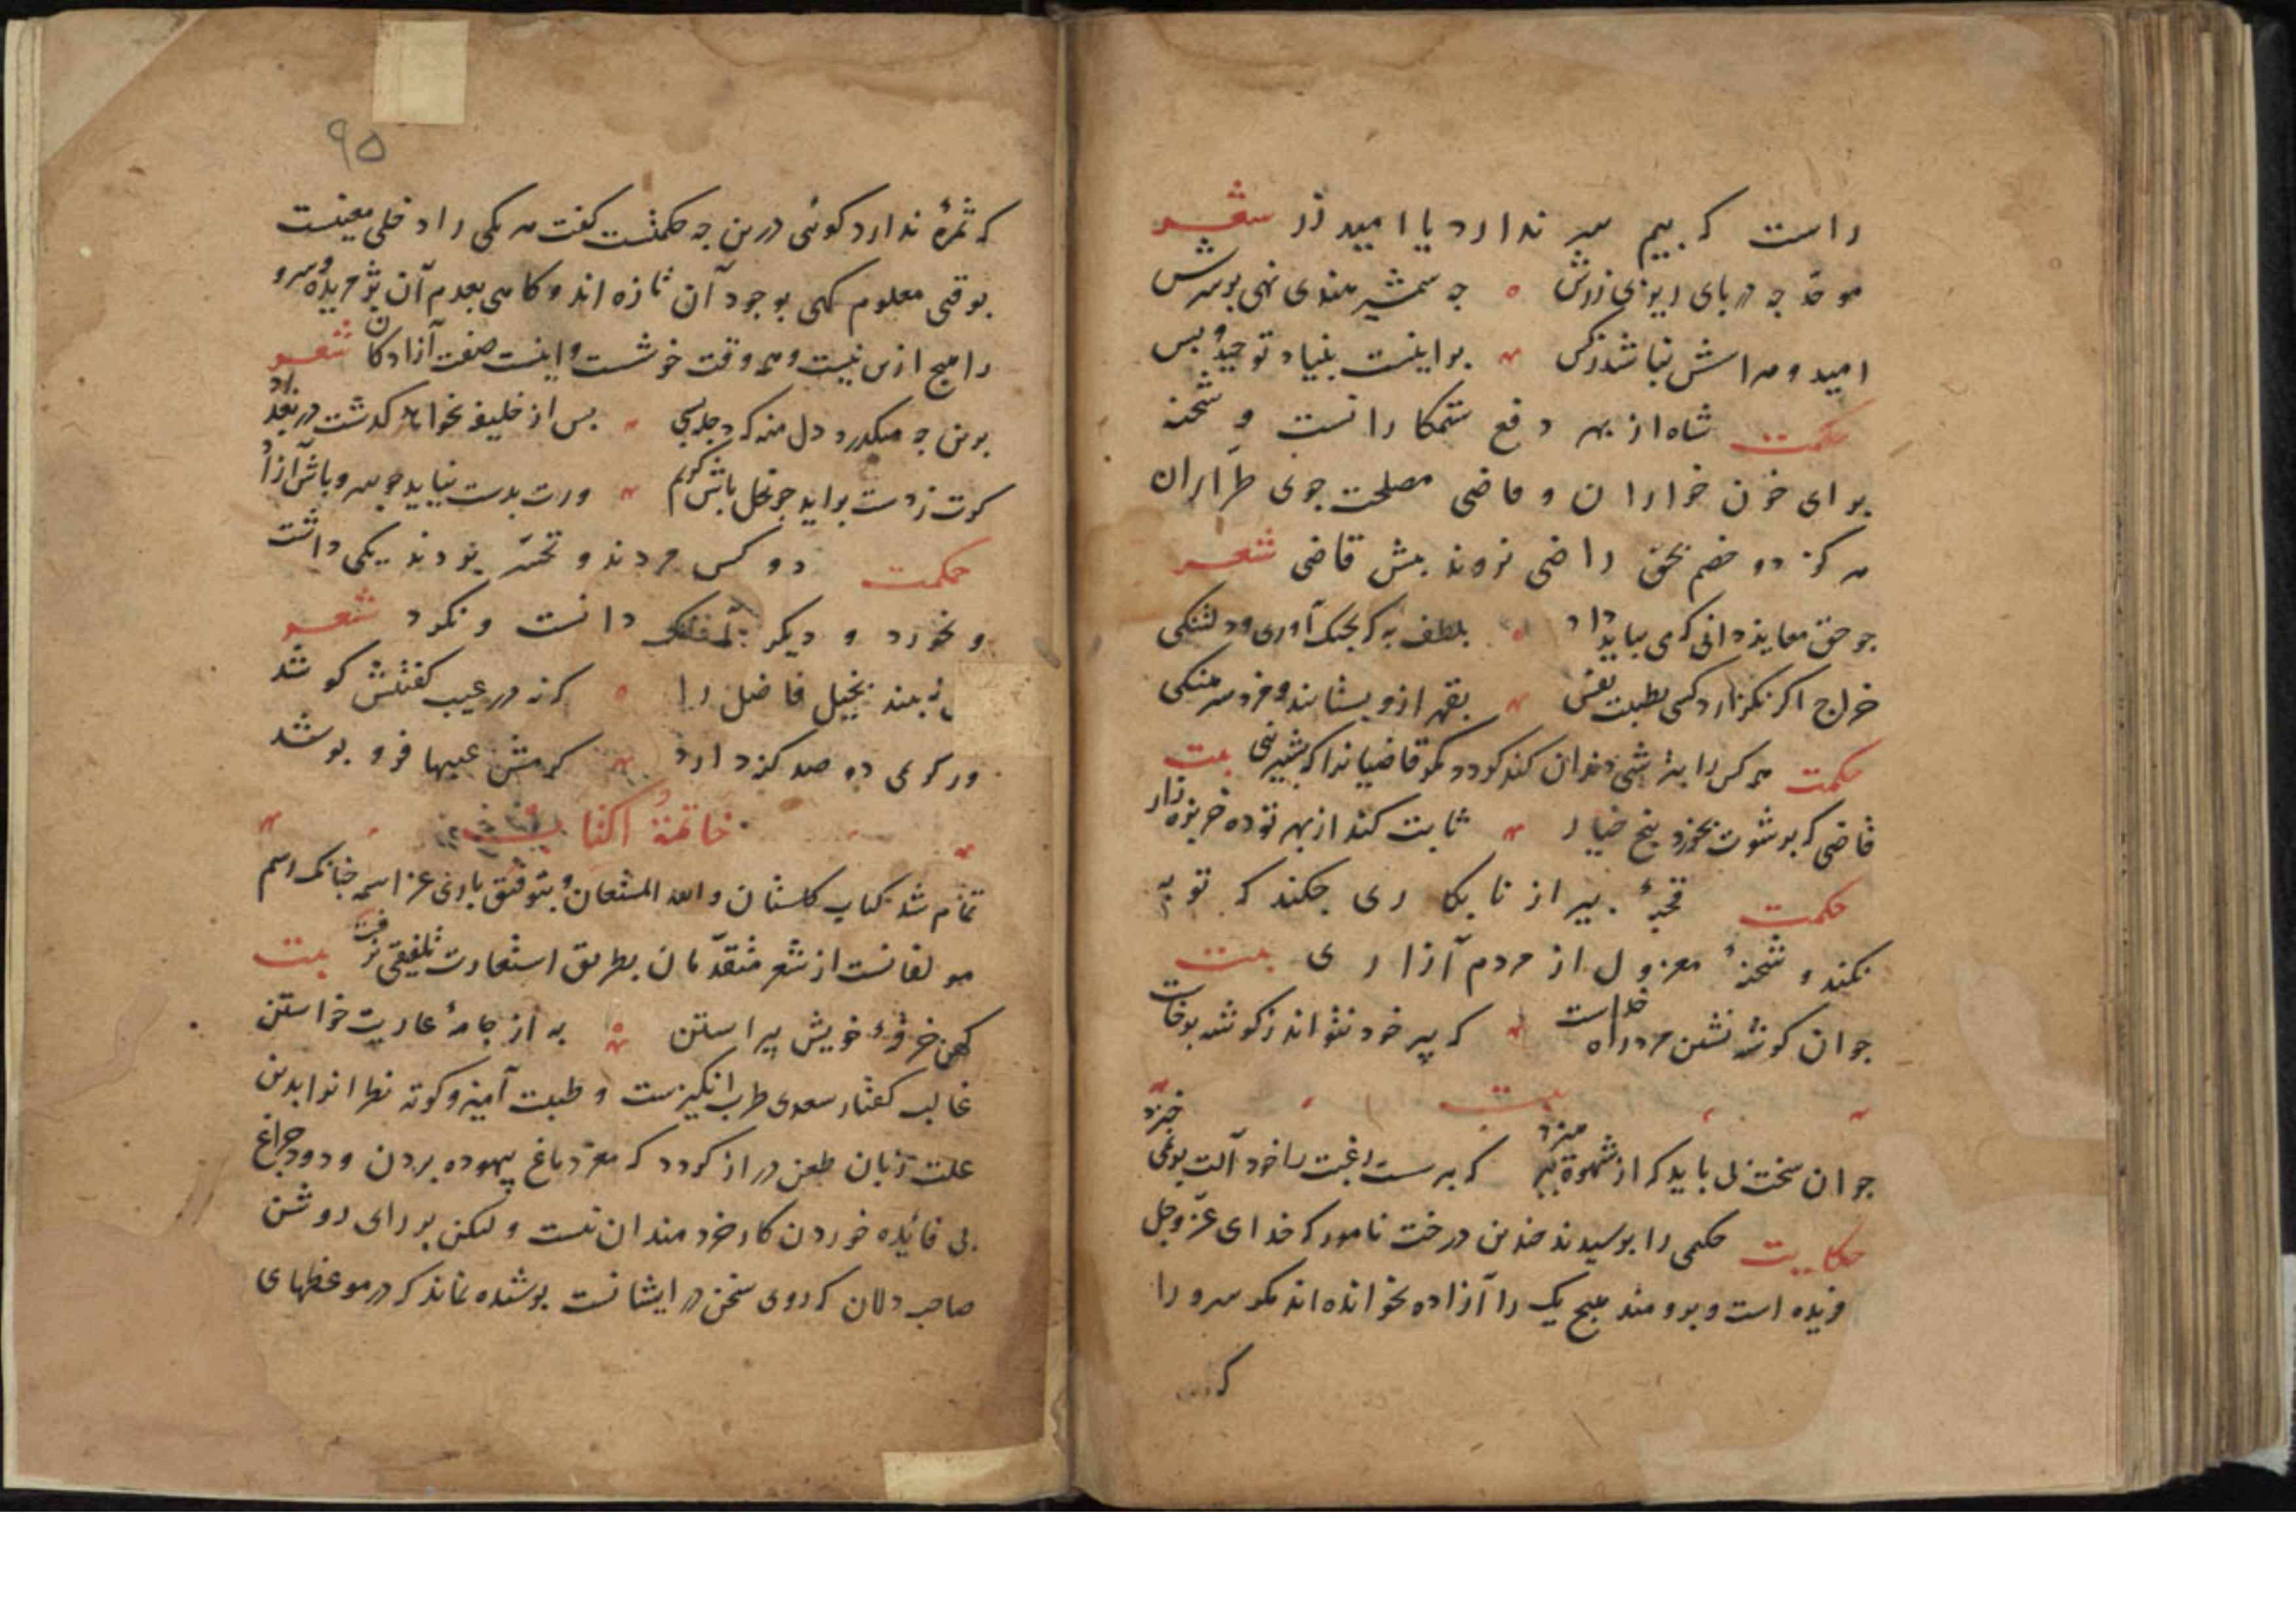 راست که بیم سر ندارد یا امید زر شعر
موحد چه در پای ریزی زرش ه چه شمشیر هندی نهی بر سرش
امید و هراسش نباشد ز کس برانیست بنیاد توحید و بس
حکمت شاه از بهر دفع ستمکارانست و شحنه
برای خون خواران و قاضی مصلحت جوی طراران
هرکز دو خصم بحق راضی نروند پیش قاضی شعر
چو حق معاینه دانی که می بباید داد بلطف به که بجنک آوری و دلتنکی
خراج اکر نکزارد کسی بطیبت نفس بقهر ازو بستانند و مزد سرهنکی
حکمت همه کس را بترشی دندان کند کردد مکر قاضیانرا که بشیرینی بیت
قاضی که برشوت بخورد پنج خیار ثابت کند از بهر تو ده خربزه زار
حکمت قحبهٔ پیر از نابکاری چکند که توبه
نکند و شحنهٔ معزول از مردم آزاری بیت
جوان کوشه نشین مرد راه خداست که پیر خود نتواند ز کوشه برخاست
بیت
جوان سخت می باید که از شهوة بپرهیزد که پیر سست رغبت را خود آلت بر نمی خیزد
حکایت حکیمی را پرسیدند چندین درخت نامور که خدای عز و جل
فریده است و برومند هیچ یک را آزاده نخوانده اند مکر سرو را
که
۹۵
که ثمرهٔ ندارد کوئی درین چه حکمتست کفت هر یکی را دخلی معینست
بوقتی معلوم کهی بوجود آن تازه اند و کاهی بعدم آن پژمریده و سرو
را هیچ ازین نیست و همه وقت خوشست و اینست صفت آزادکان شعر
برین چه میکذرد دل منه که دجله بسی پس از خلیفه نخواهد کذشت در بغداد
کرت ز دست براید چو نخل باش کریم ورت بدست نیاید چو سرو باش آزاد
حکمت دو کس مردند و تحسر بردند یکی داشت
و نخورد و دیکر دانست و نکرد شعر
نبیند بخیل فاضل را ه که نه در عیب کفتنش کوشد
ور کرمی دو صد کنه دارد کرمش عیبها فرو پوشد
خاتمة الکتاب
تمام شد کتاب کلستان و الله المستعان و بتوفیق باری عز اسمه چنانک رسم
مولفانست از شعر متقدمان بطریق استعارت تلفیقی نرفت بیت
کهن خرقهٔ خویش پیراستن به از جامهٔ عاریت خواستن
غالب کفتار سعدی طرب انکیزست و طیبت آمیز و کوته نظرانرا بدین
علت زبان طعن دراز کردد که مغز دماغ بیهوده بردن و دود چراغ
بی فائده خوردن کار خردمندان نیست و لیکن بر رای روشن
صاحب دلان که روی سخن در ایشانست پوشیده نماند که در موعظهای